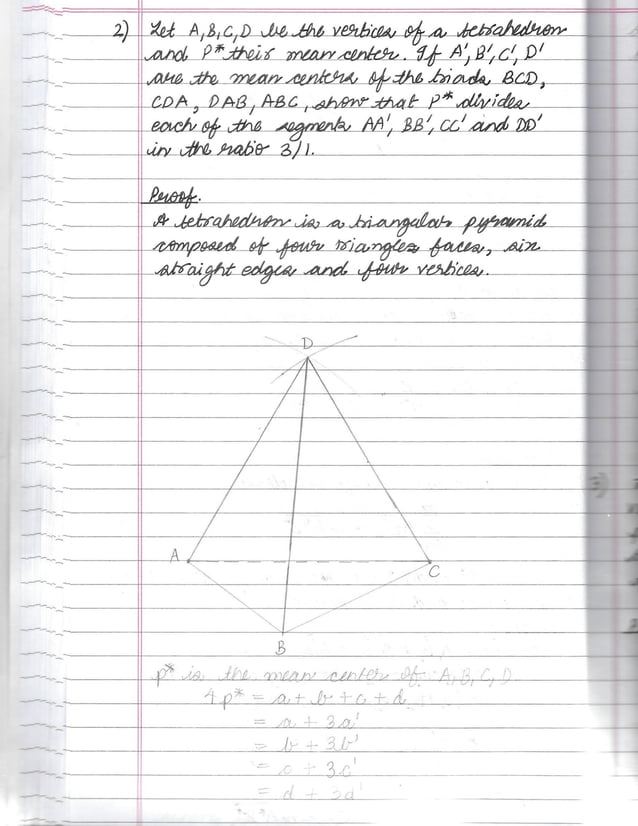 2) Let A,B,C,D be the vertices of a tetrahedron
and P* their mean center. If A', B', C', D'
are the mean centers of the triads BCD,
CDA, DAB, ABC, show that P* divides
each of the segments AA', BB', CC' and DD'
in the ratio 3/1.
Proof.
A tetrahedron is a triangular pyramid
composed of four riangles faces, six
straight edges and four vertices.
D
3)
A
C
B
p* is the mean center of A, B, C, D
4p* = a + b + c + d
= a + 3a'
= b + 3b'
= c + 3c'
= d + 3d'